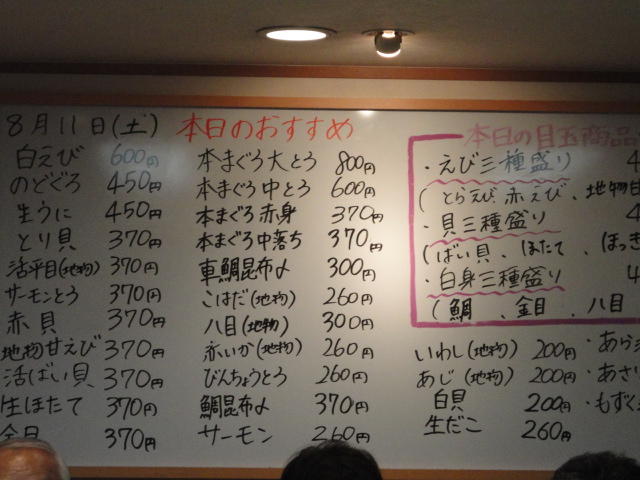 8月11日(土) 本日のおすすめ
白えび 600円
のどぐろ 450円
生うに 450円
とり貝 370円
活平目(地物) 370円
サーモンとろ 370円
赤貝 370円
地物甘えび 370円
活ばい貝 370円
生ほたて 370円
金目 370円
本まぐろ大とろ 800円
本まぐろ中とろ 600円
本まぐろ赤身 370円
本まぐろ中落ち 370円
車鯛昆布〆 300円
こはだ(地物) 260円
八目(地物) 300円
赤いか(地物) 260円
びんちょうとろ 260円
鯛昆布〆 370円
サーモン 260円
本日の目玉商品
・えび三種盛り 4
(とらえび、赤えび、地物甘
・貝三種盛り 4
(ばい貝、ほたて、ほっき
・白身三種盛り 4
(鯛、金目、八目
いわし(地物) 200円
あじ(地物) 200円
白貝 200円
生だこ 260円
・あら
・あさり
・もずく